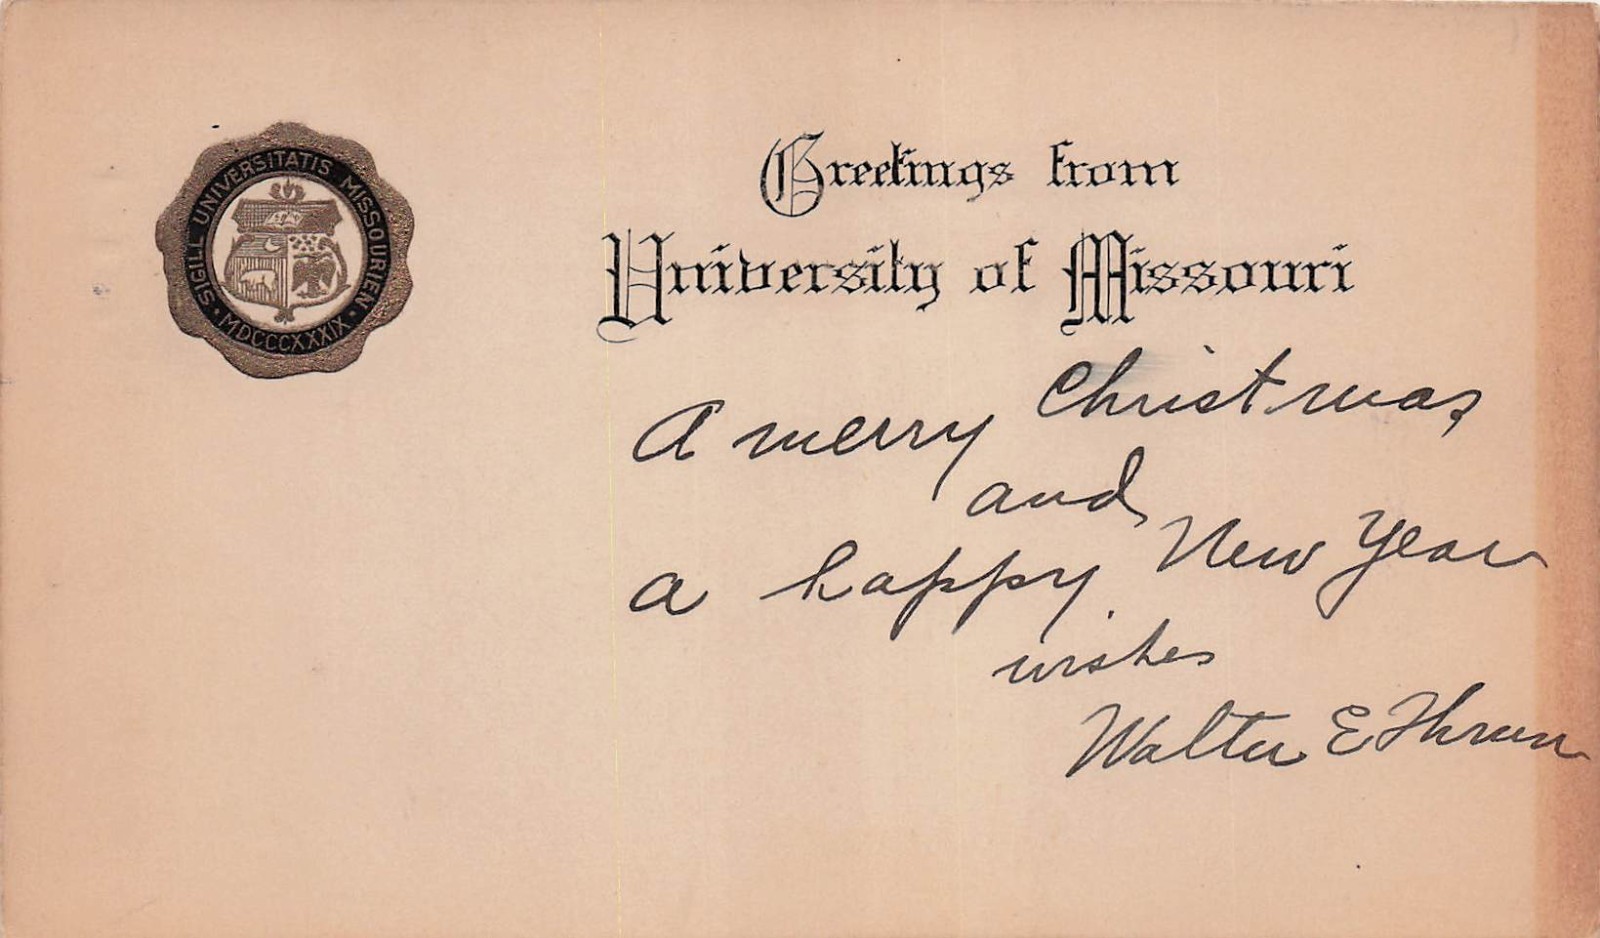 SIGILL UNIVERSITATIS MISSOURIEN
· MDCCCXXXIX ·
Greetings from
University of Missouri
A merry Christmas,
and
a happy New Year
wishes
Walter E Thrun